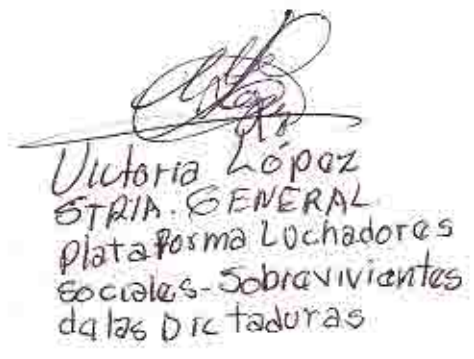 Victoria López
STRIA. GENERAL
Plataforma Luchadores
sociales-Sobrevivientes
de las Dictaduras